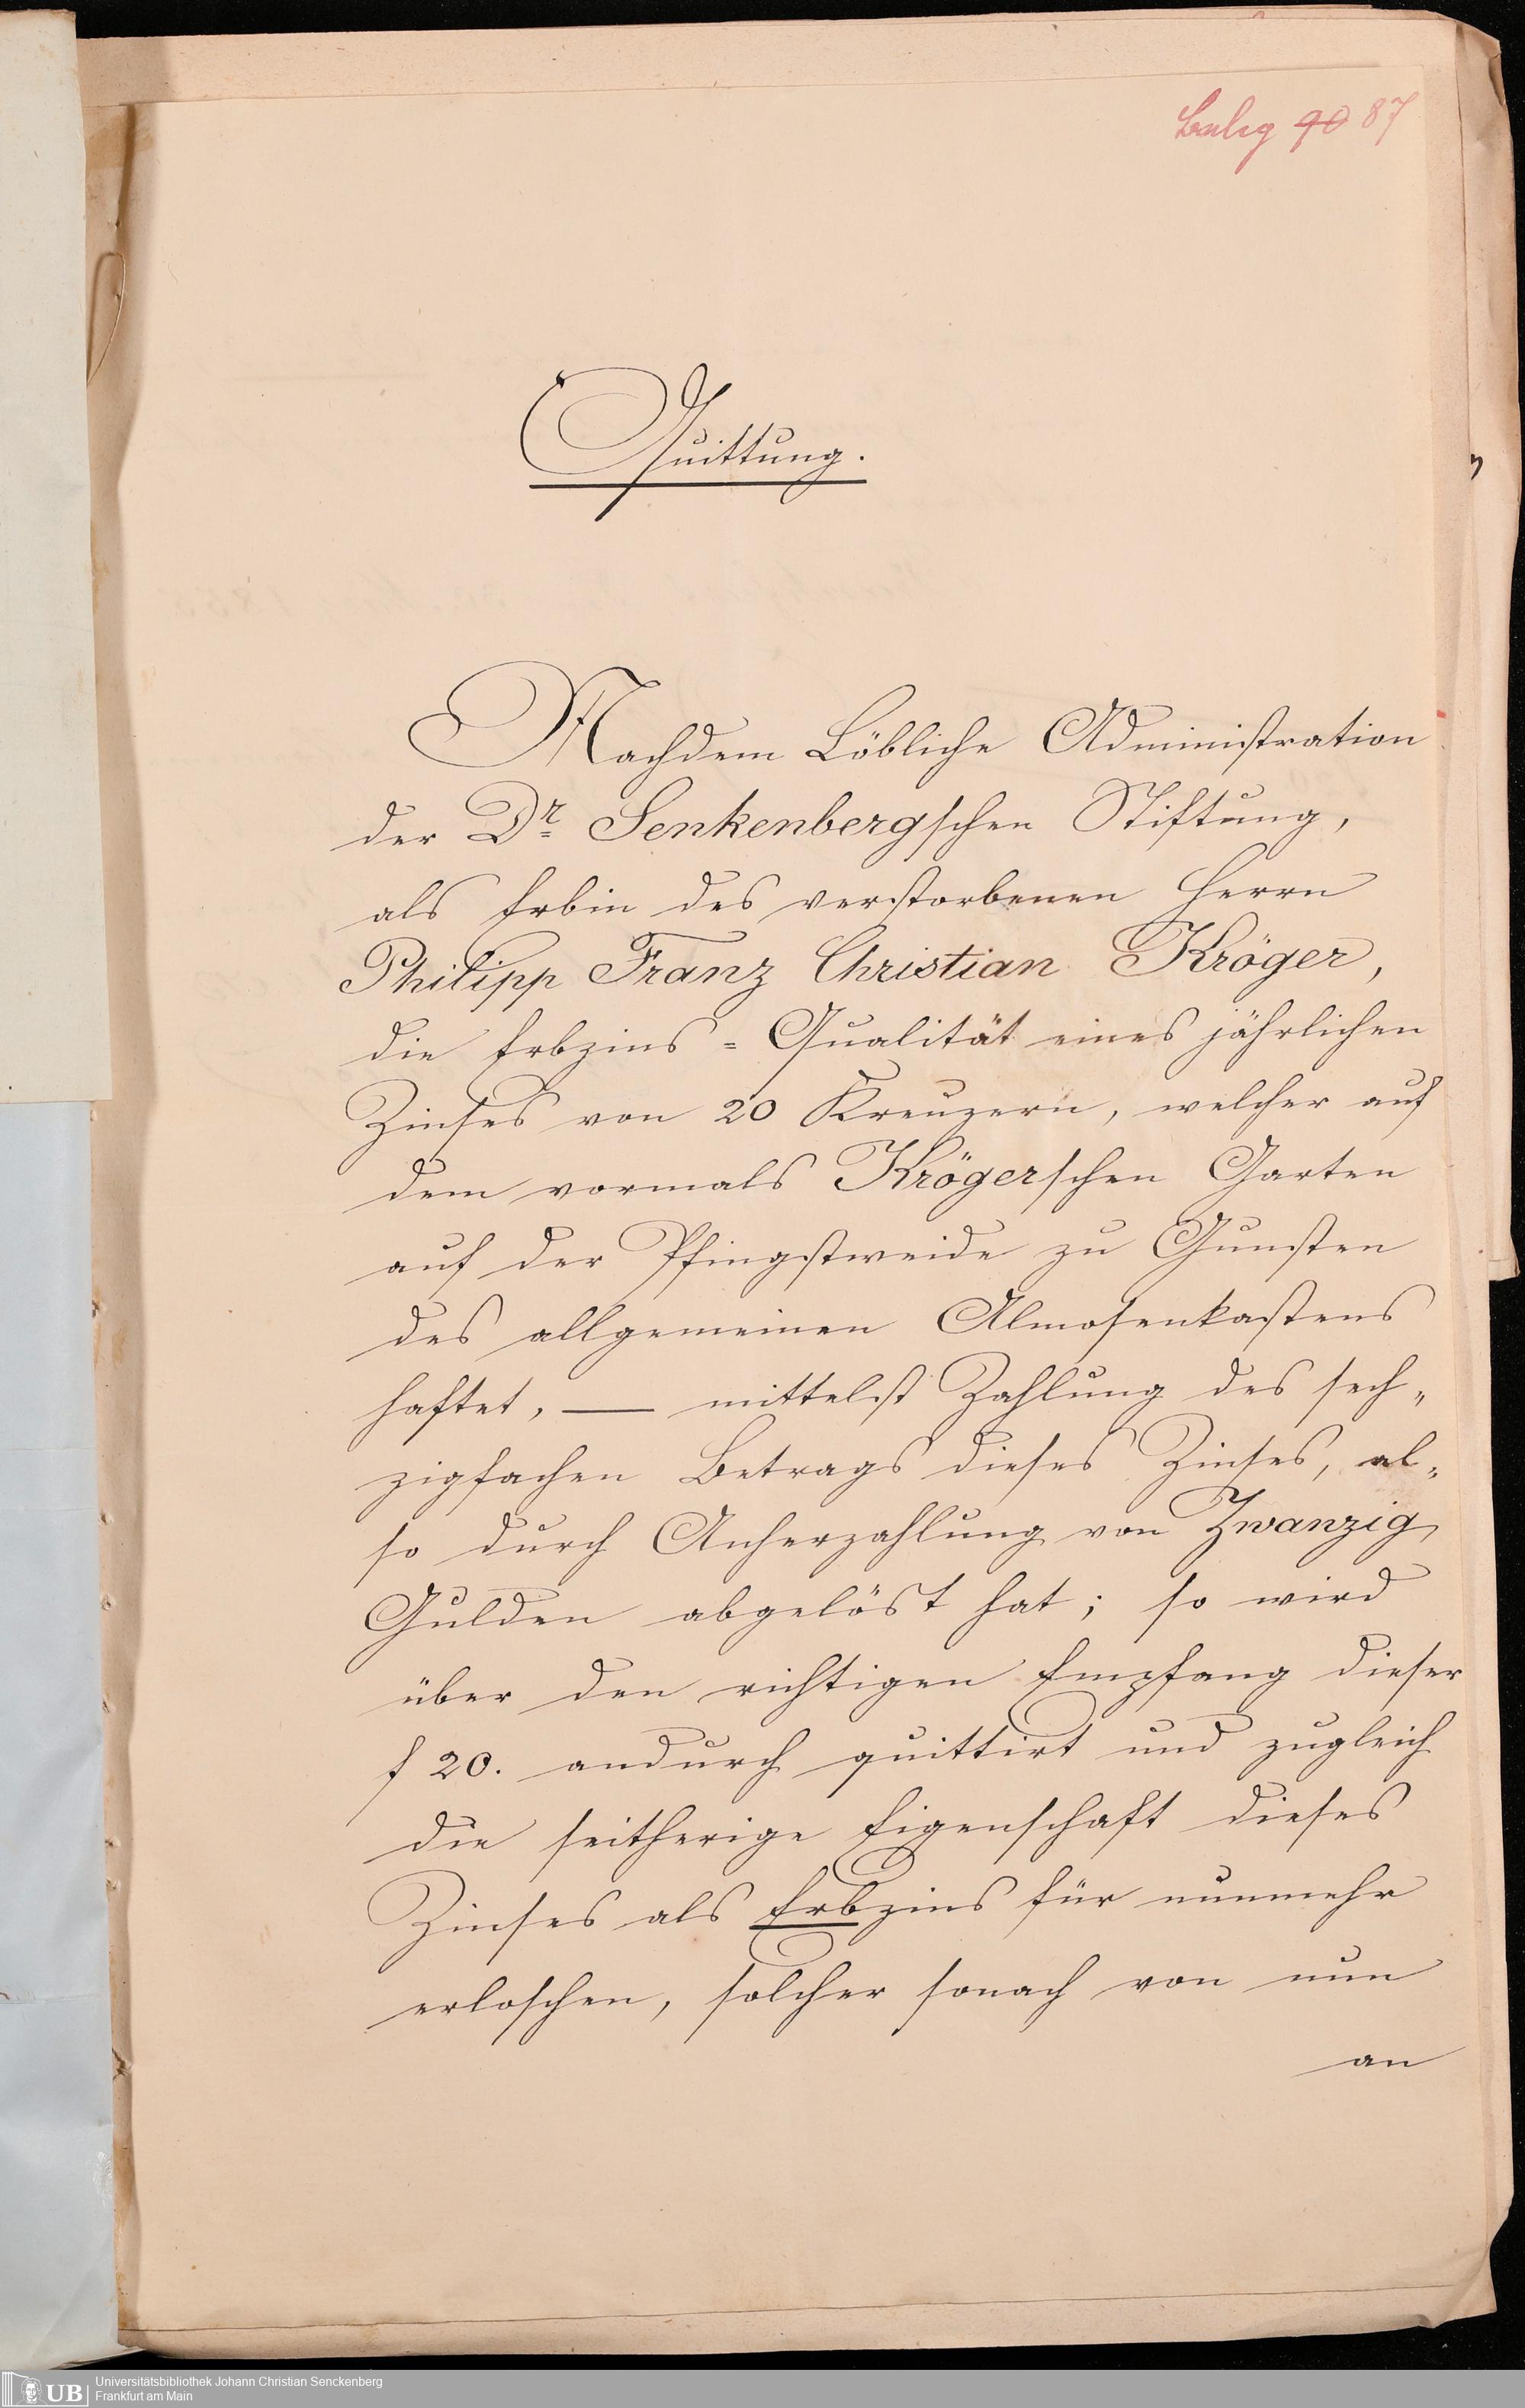 Beleg 90 87
Quittung.
Nachdem Löbliche Administration
der Dr. Senkenbergschen Stiftung,
als Erbin des verstorbenen Herrn
Philipp Franz Christian Kröger,
die Erbzins=Qualität eines jährlichen
Zinses von 20 Kreuzern, welcher auf
dem vormals Krögerschen Garten
auf der Pfingstweide zu Gunsten
des allgemeinen Almosenkastens
haftet, — mittelst Zahlung des sech„
zigfachen Betrags dieses Zinses, al„
so durch Anherzahlung von Zwanzig
Gulden abgelöst hat; so wird
über den richtigen Empfang dieser
f 20. andurch quittirt und zugleich
die seitherige Eigenschaft dieses
Zinses als Erbzins für nunmehr
erloschen, solcher sonach von nun
an
UB Universitätsbibliothek Johann Christian Senckenberg
Frankfurt am Main